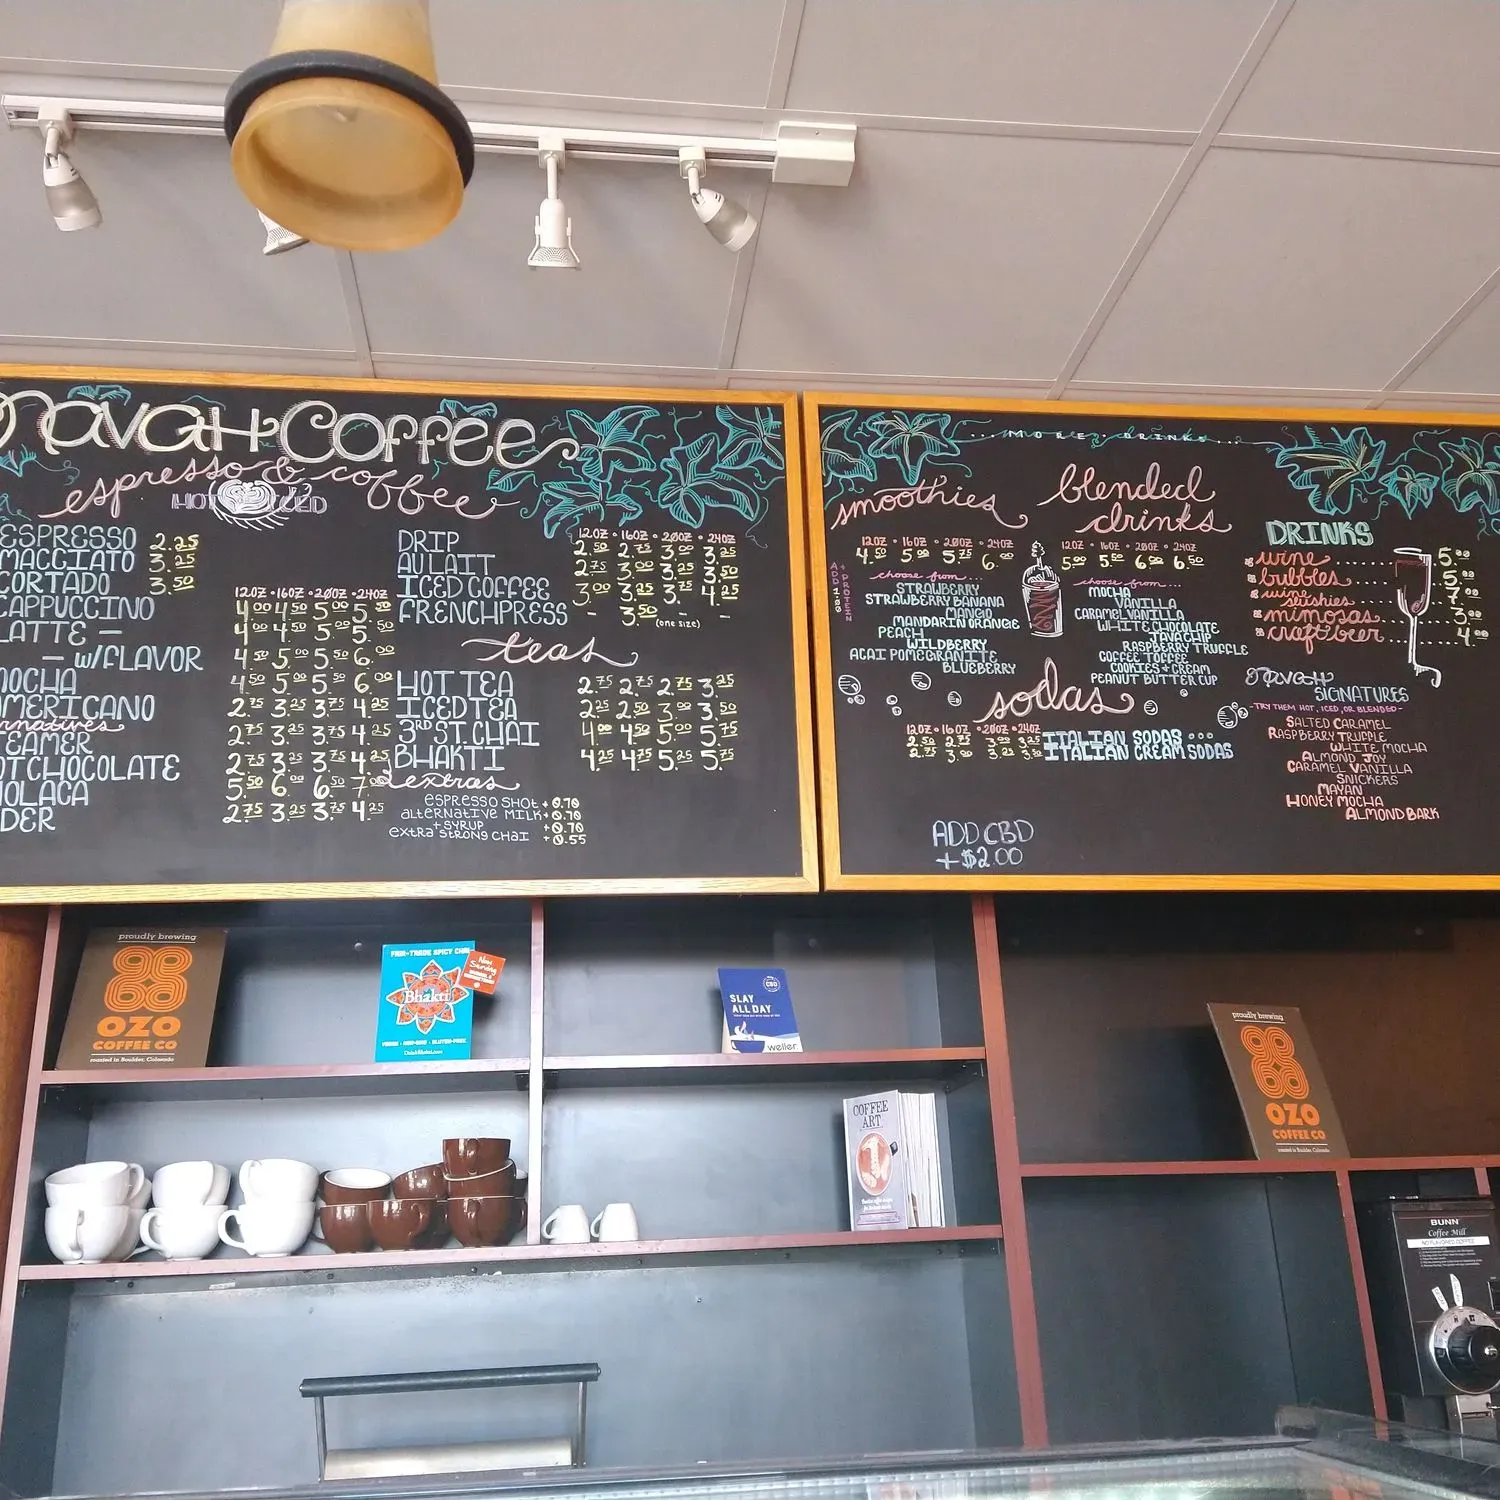 COFFEE
espresso & coffee
HOT ICED
ESPRESSO 2.25
MACCIATO 3.25
CORTADO 3.50
12OZ • 16OZ • 20OZ • 24OZ
CAPPUCCINO 4.00 4.50 5.00 5.50
LATTE — 4.00 4.50 5.00 5.50
— W/FLAVOR 4.50 5.00 5.50 6.00
MOCHA 4.50 5.00 5.50 6.00
AMERICANO 2.75 3.25 3.75 4.25
EAMER 2.75 3.25 3.75 4.25
OT CHOCOLATE 2.75 3.25 3.75 4.25
OLACA 5.50 6.00 6.50 7.00
DER 2.75 3.25 3.75 4.25
12OZ • 16OZ • 20OZ • 24OZ
DRIP 2.50 2.75 3.00 3.25
AU LAIT 2.75 3.00 3.25 3.50
ICED COFFEE 3.00 3.25 3.75 4.25
FRENCHPRESS - 3.50 (one size) -
teas
HOT TEA 2.75 2.75 2.75 3.25
ICED TEA 2.25 2.50 3.00 3.50
3RD ST. CHAI 4.00 4.50 5.25 5.75
BHAKTI 4.25 4.75 5.25 5.75
extras
ESPRESSO SHOT + 0.70
ALTERNATIVE MILK + 0.70
+ SYRUP + 0.70
EXTRA STRONG CHAI + 0.55
... MORE DRINKS ...
smoothies
12OZ • 16OZ • 20OZ • 24OZ
4.50 5.00 5.75 6.00
choose from...
STRAWBERRY
STRAWBERRY BANANA
MANGO
MANDARIN ORANGE
PEACH
WILDBERRY
ACAI POMEGRANITE
BLUEBERRY
ADD PROTEIN
blended drinks
12OZ • 16OZ • 20OZ • 24OZ
5.00 5.50 6.00 6.50
choose from...
MOCHA
VANILLA
CARAMEL VANILLA
WHITE CHOCOLATE
JAVA CHIP
RASPBERRY TRUFFLE
COFFEE TOFFEE
COOKIES & CREAM
PEANUT BUTTER CUP
sodas
12OZ • 16OZ • 20OZ • 24OZ
2.50 2.75 3.00 3.25 ITALIAN SODAS ...
2.75 3.00 ITALIAN CREAM SODAS
ADD CBD
+ $2.00
DRINKS
wine 5.00
bubbles 5.00
wine slushies 7.00
mimosas 3.00
craft beer 4.00
SIGNATURES
- TRY THEM HOT, ICED, OR BLENDED -
SALTED CARAMEL
RASPBERRY TRUFFLE
WHITE MOCHA
ALMOND JOY
CARAMEL VANILLA
SNICKERS
MAYAN
HONEY MOCHA
ALMOND BARK
proudly brewing
OZO
COFFEE CO
roasted in Boulder, Colorado
FAIR-TRADE SPICY CHAI
Now Serving
Bhakti
VEGAN • NON-GMO • GLUTEN-FREE
CBD
SLAY
ALL DAY
weller
COFFEE
ART
proudly brewing
OZO
COFFEE CO
roasted in Boulder, Colorado
BUNN
Coffee Mill
NO FLAVORED COFFEE